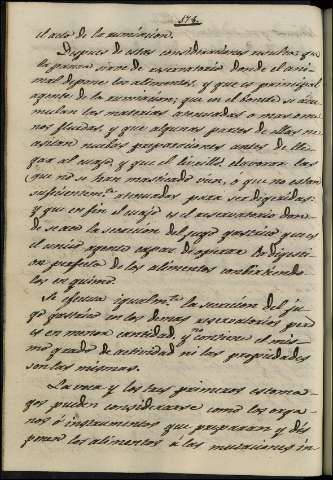 174.
el acto de la rumiacion.
Despues de estas consideraciones resulta que
la panza sirve de reservatorio donde el ani-
mal depone los alimentos, y que es principal
agente de la rumiacion; que en el bonete se acu-
mulan las materias atenuadas o mas o me-
nos fluidas, y que algunas partes de ellas ne-
cesitan nuebas preparaciones antes de lle-
gar al cuajo, y que el librillo, elavoran las
que no se han masticado vien, ó que no estan
suficientemte. atenuadas para ser digeridas:
y que en fin el cuajo es el reservatorio don-
de se ace la secrecion del jugo gastrico que es
el unico agente capaz de operar la digesti-
on perfecta de los alimentos convirtiendo
los en quimo.
Se efectua igualmte. la secrecion del ju-
go gastrico en los demas reservatorios pero
es en menor cantidad y no contiene el mis-
mo grado de actividad ni las propiedades
son las mismas.
La voca y los tres primeros estoma-
gos pueden considerarse como los orga-
nos ó instrumentos que preparan y dis
ponen los alimentos á las mutaciones in-